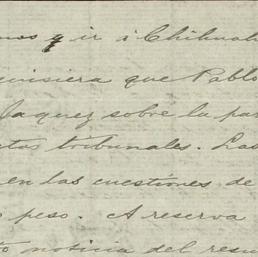 mos y ir á Chihuah
quisiera que Pablo
Jaquez sobre la par
tos tribunales. Las
en las cuestiones de
peso. A reserva
noticia del resu